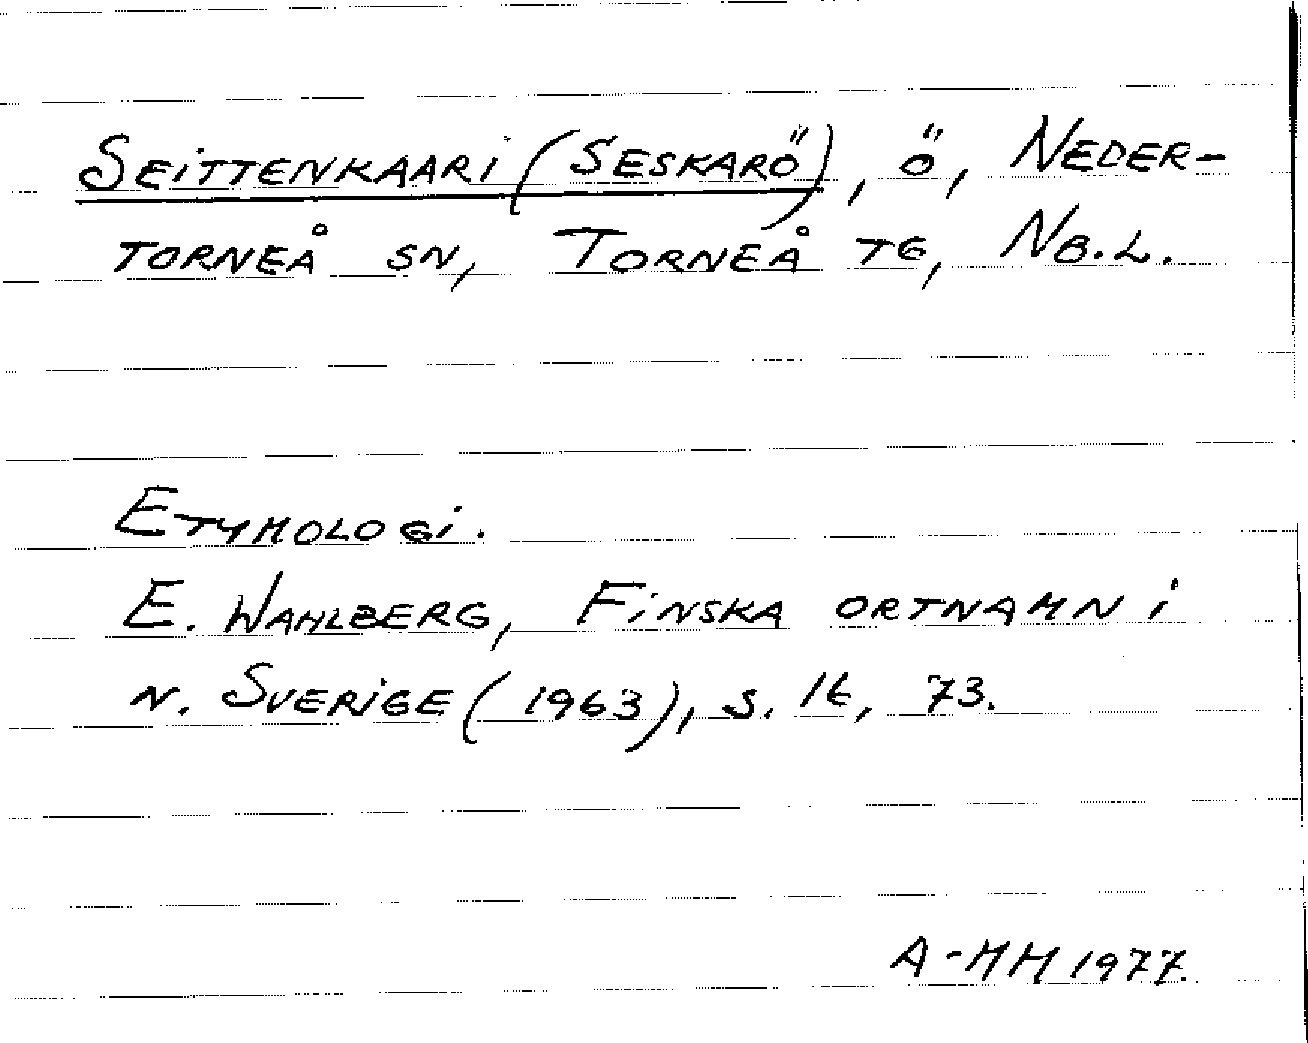 SEITTENKAARI (SESKARÖ), Ö, NEDER-
TORNEÅ SN, TORNEÅ TG, NB.L.
ETYMOLOGI.
E. WAHLBERG, FINSKA ORTNAMN I
N. SVERIGE (1963), S. 16, 73.
A-MH 1977.